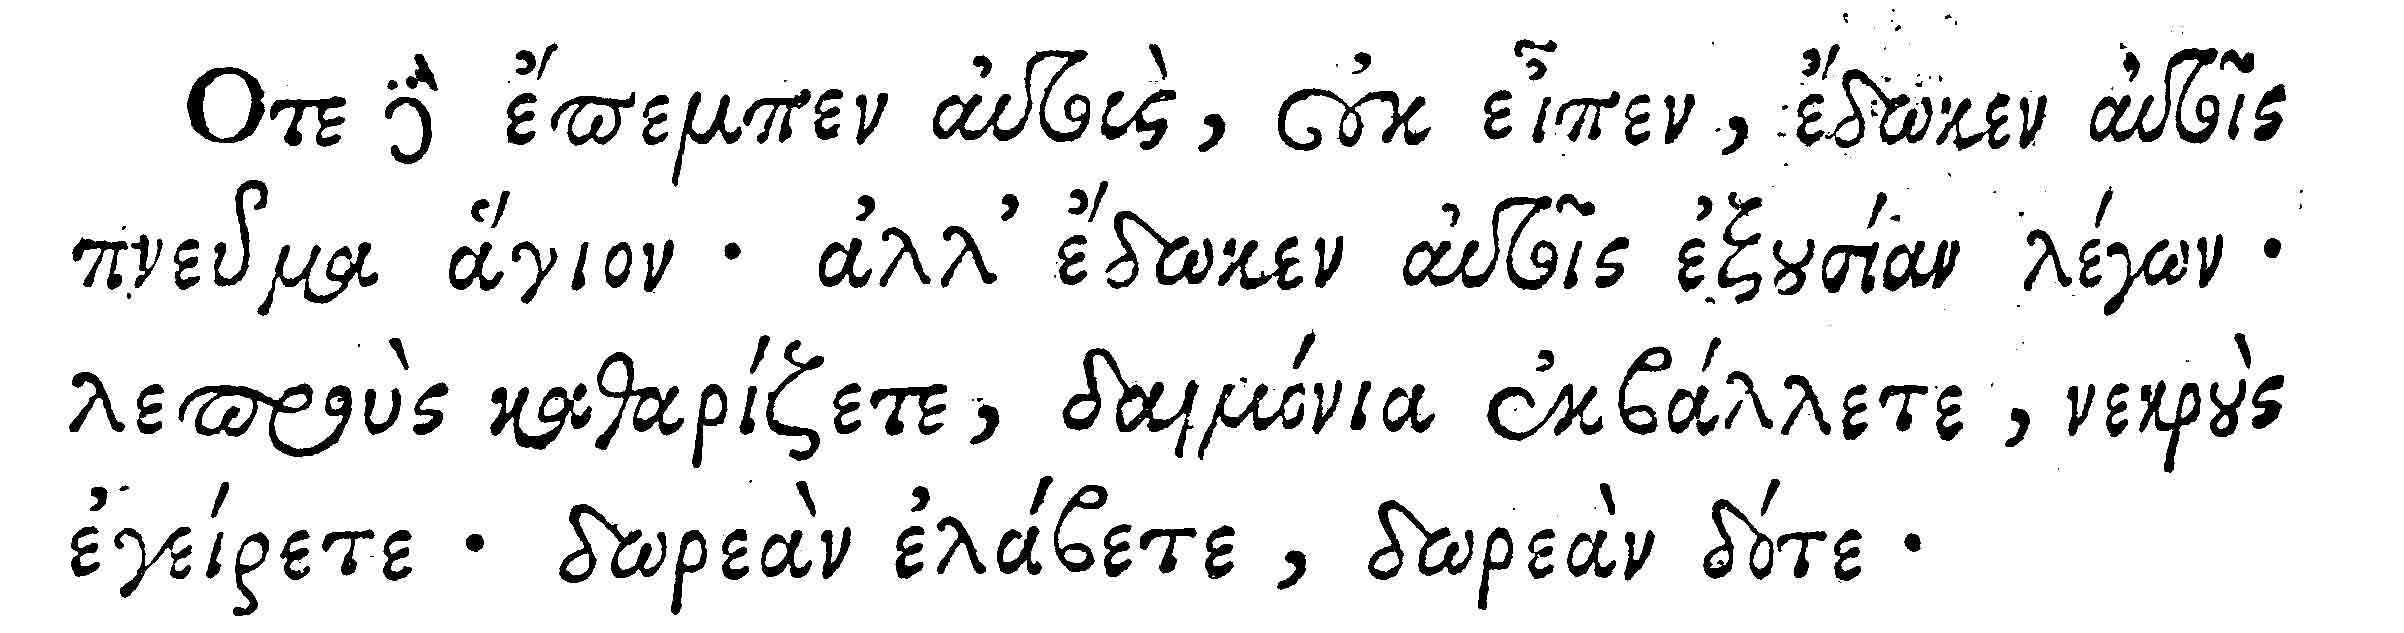 Οτε δὲ ἔπεμπεν αὐτοὺς, οὐκ εἶπεν, ἔδωκεν αὐτοῖς
πνεῦμα ἅγιον · ἀλλ᾽ ἔδωκεν αὐτοῖς ἐξουσίαν λέγων ·
λεπροὺς καθαρίζετε, δαιμόνια ἐκβάλλετε, νεκροὺς
ἐγείρετε · δωρεὰν ἐλάβετε, δωρεὰν δότε ·